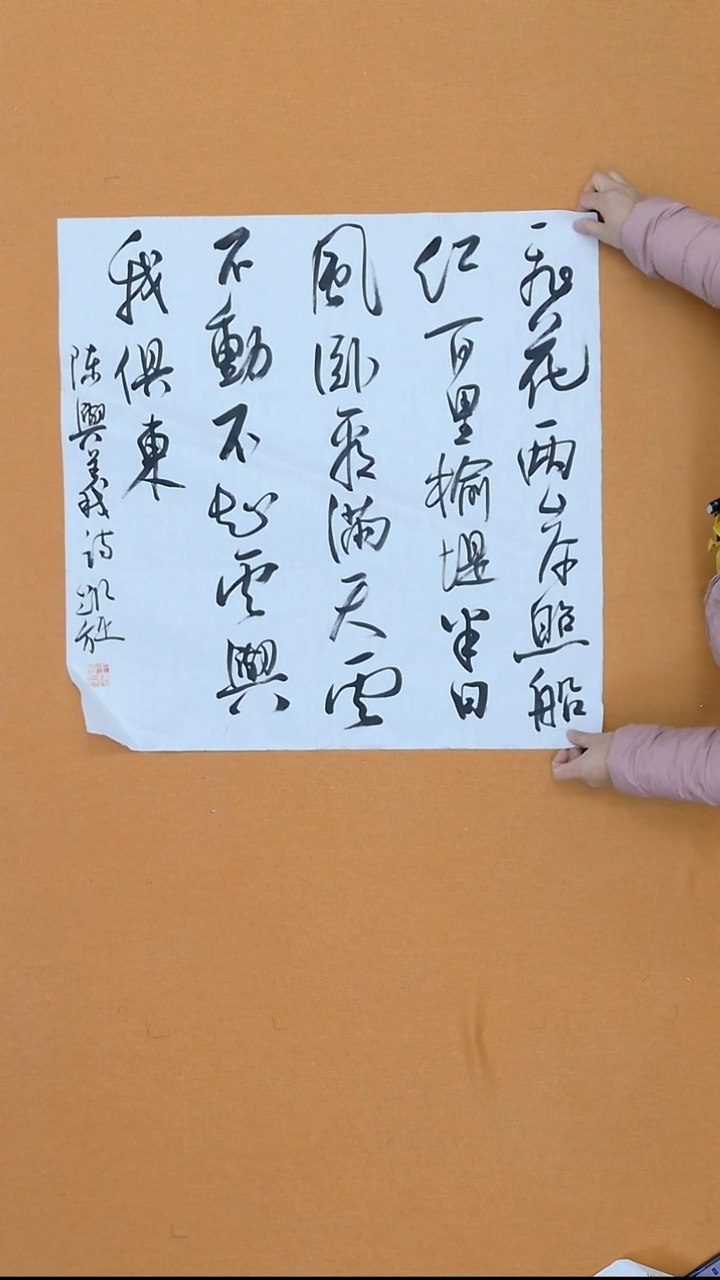 飛花兩岸照船
紅百里榆堤半日
風臥看滿天雲
不動不知雲與
我俱東
陳與義詩